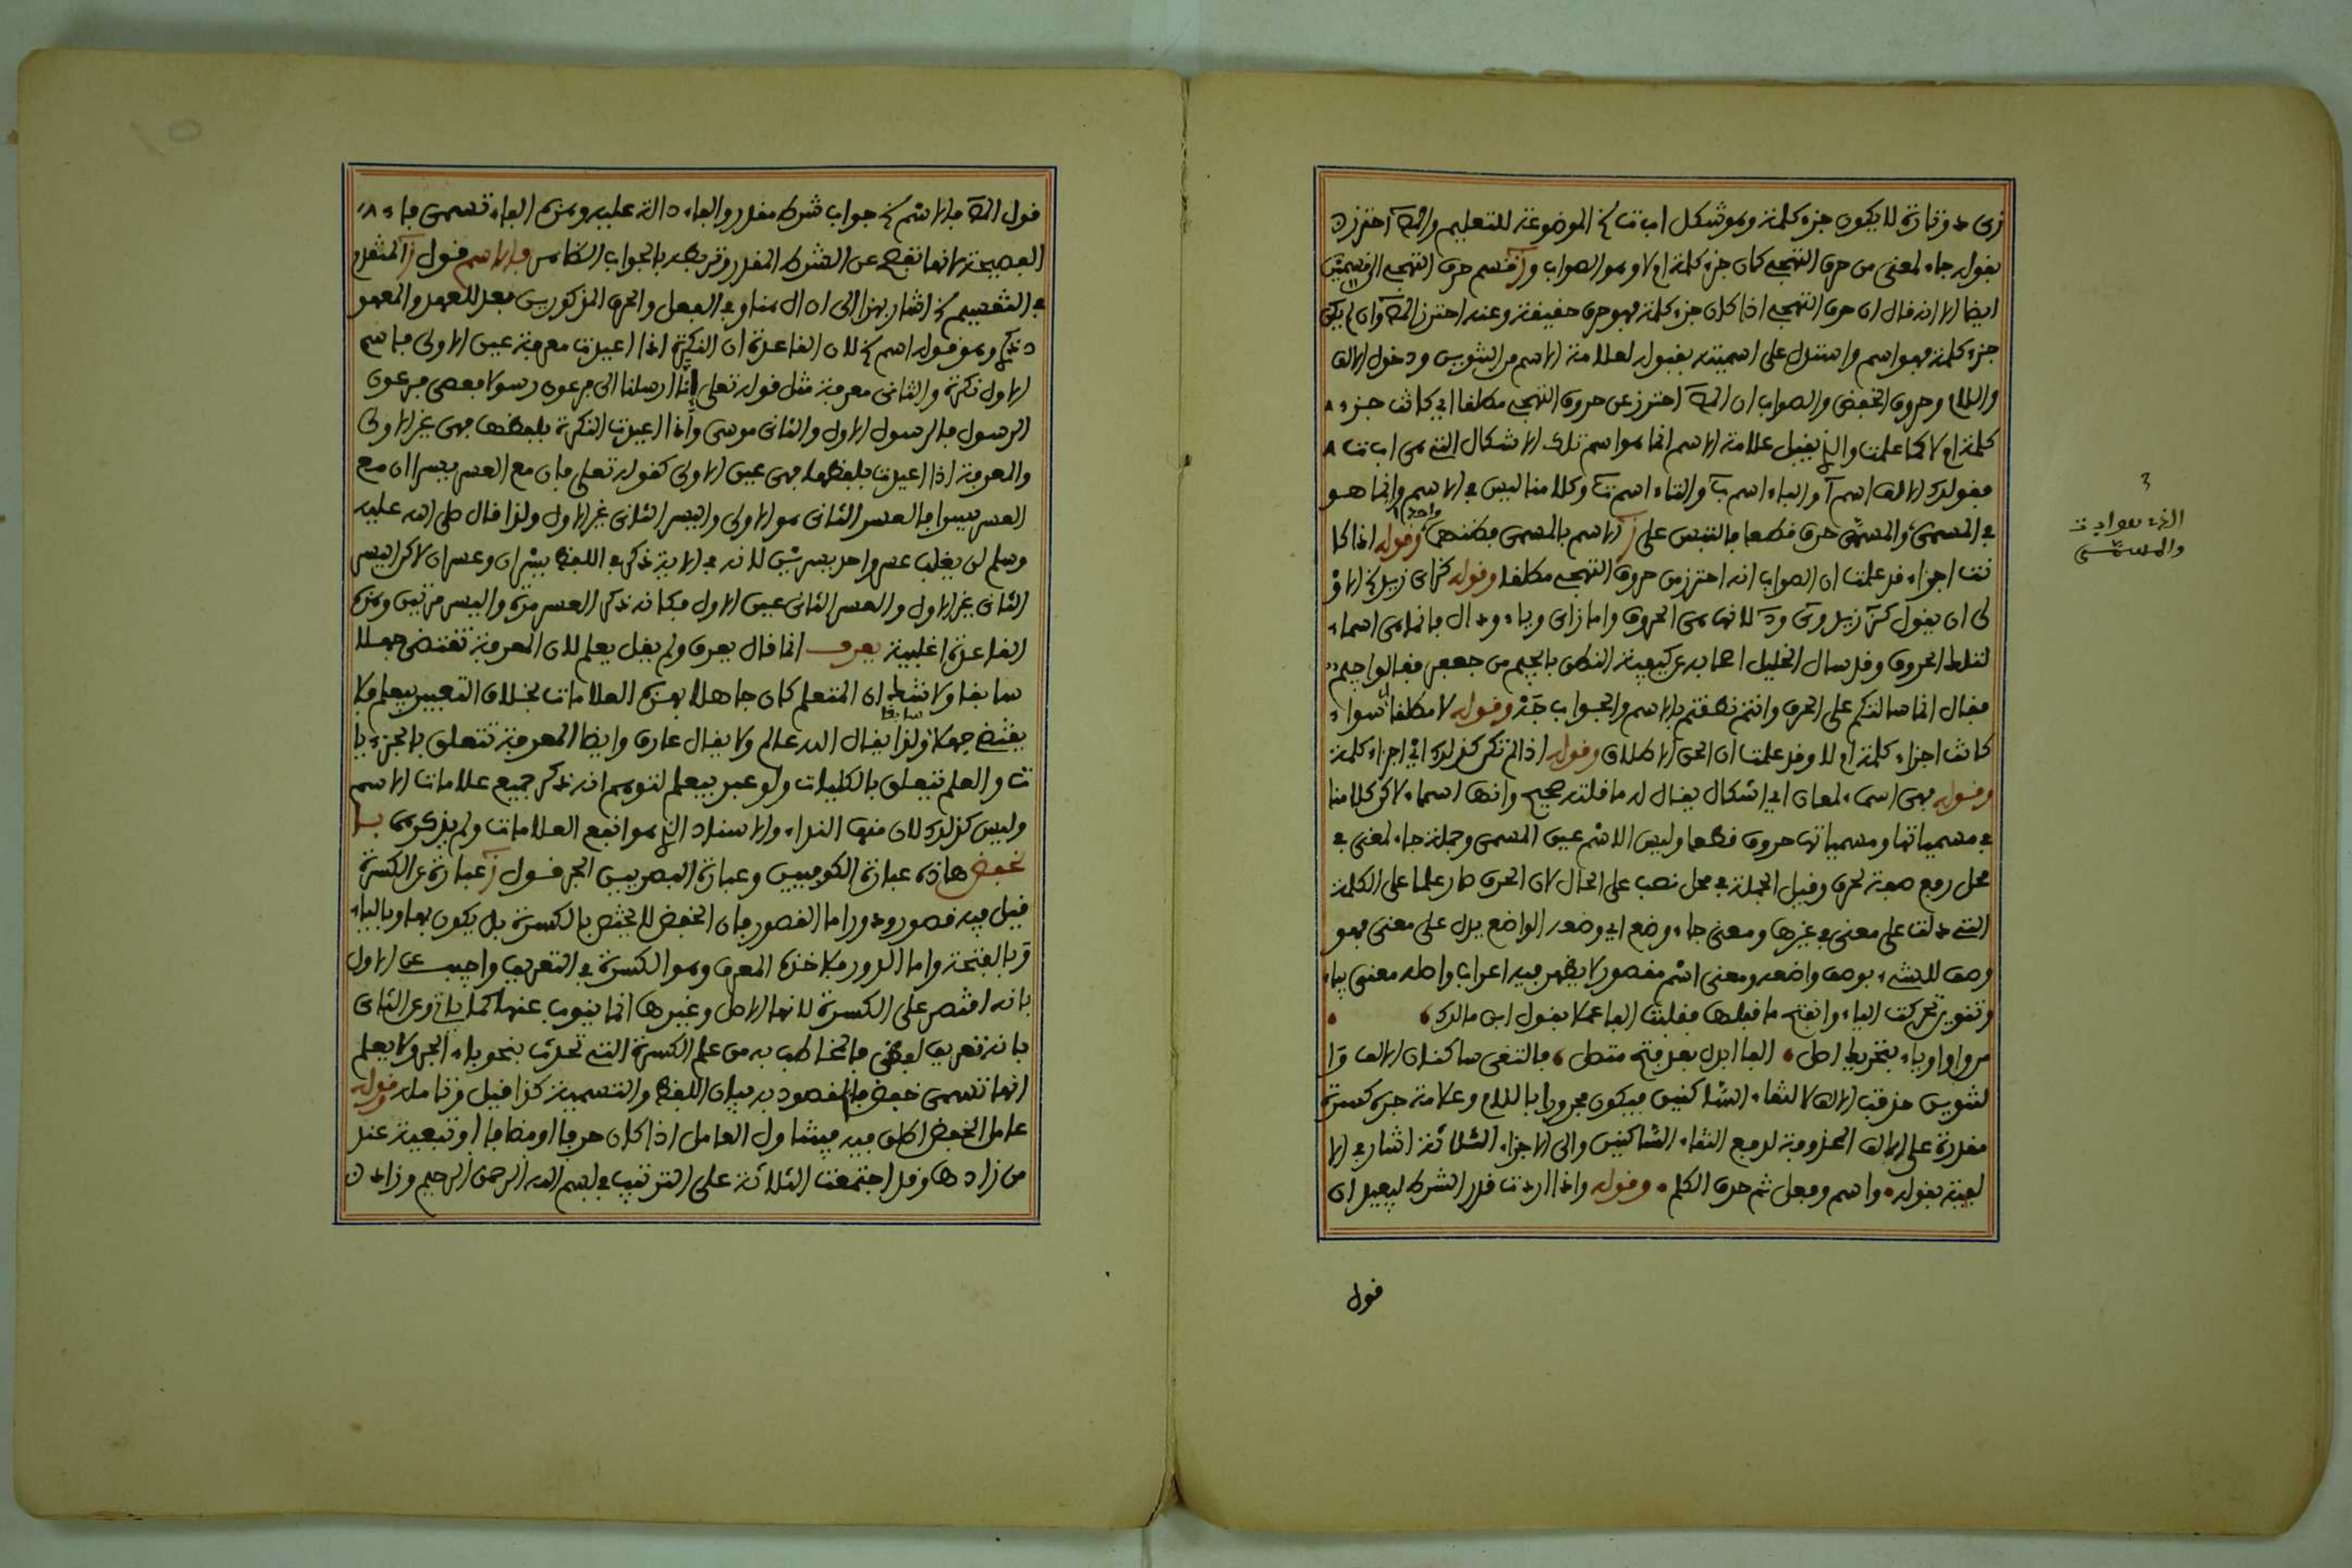 زى د وتارة لا يكون جزء كلمة وهو شكل ا ب ت الخ الموضوعة للتعليم والمص احترز
بقوله جاء لمعنى من حرف التهجى كان جزء كلمة ام لا وهو الصواب و قسم حرف التهجى الى قسمين
ايضا الا انه قال ان حرف التهجى اذا كان جزء كلمة فهو حرف حقيقة وعنه احترز المص وان لم يكن
جزء كلمة فهو اسم واستدل على اسميته بقبوله لعلامة الاسم من التنوين ودخول الالف
واللام وحروف الخفض والصواب ان المص احترز عن حروف التهجى مطلقا اى كانت جزء
كلمة ام لا كما علمت والذى يقبل علامة الاسم انما هو اسم تلك الاشكال التى هى ا ب ت
فقولك الالف اسم ا والباء اسم ب والتاء اسم ت وكلامنا ليس فى الاسم وانما هو
فى المسمى والمسمى حرف قطعا فالتبس على ز الاسم بالمسمى فظنهما واحدا وقوله اذا كا
نت اجزاء قد علمت ان الصواب انه احترز من حروف التهجى مطلقا وقوله كزاى زيد الخ الاو
لى ان يقول كز زيد وى ود لانها هى الحروف واما زاى وياء ودال فانما هى اسماء
لتلك الحروف وقد سال الخليل اصحابه عن كيفية النطق بالجيم من جعفر فقالوا جيم
فقال انما سالتكم على الحرف وانتم نطقتم بالاسم والجواب جه وقوله لا مطلقا اى سواء
كانت اجزاء كلمة ام لا وقد علمت ان الحق الاطلاق وقوله اذا لم تكن كذلك اى اجزاء كلمة
وقوله فهى اسماء لمعان اى اشكال يقال له ما قلته صحيح وانها اسماء لاكن كلامنا
فى مسمياتها ومسمياتها حروف قطعا وليس الاسم عين المسمى وجملة جاء لمعنى فى
محل رفع صفة لحرف وقيل الجملة فى محل نصب على الحال لان الحرف صار علما على الكلمة
التى دلت على معنى فى غيرها ومعنى جاء وضع اى وضعه الواضع يدل على معنى فهو
وصف للشىء بوصف واضعه ومعنى اسم مقصور لا يظهر فيه اعراب واصله معنى بياء
وتنوين تحركت الياء وانفتح ما قبلها فقلبت الفا عملا بقول ابن مالك
من واو او ياء بتحريك اصل الفا ابدل بعد فتح متصل فالتقى ساكنان الالف وا
لتنوين حذفت الالف لالتقاء الساكنين فيكون مجرورا باللام وعلامة جره كسرة
مقدرة على الالف المحذوفة لدفع التقاء الساكنين والى الاجزاء الثلاثة اشار فى الا
لفية بقوله واسم وفعل ثم حرف الكلم وقوله واذا اردت قدر الشرط ليفيد ان
والمسمى
قول
قول المص فالاسم الخ جواب شرط مقدر والفاء دالة عليه وهذه الفاء تسمى فاء
الفصيحة لانها تفصح عن الشرط المقدر وتربطه بالجواب الظاهر فالاسم قول ز المتقدم
فى التقسيم الخ اشار بهذا الى ان ال هنا وفى الفعل والحرف المذكورين بعد للعهد والمعهود
ذكرى وهو قوله اسم الخ لان القاعدة ان النكرة اذا اعيدت معرفة عين الاولى فاسم
الاول نكرة والثانى معرفة مثل قوله تعلى انا ارسلنا الى فرعون رسولا فعصى فرعون
الرسول فالرسول الاول والثانى موسى واذا اعيدت النكرة بلفظها فهى غير الاولى
والمعرفة اذا اعيدت بلفظها فهى عين الاولى كقوله تعلى فان مع العسر يسرا ان مع
العسر يسرا فالعسر الثانى هو الاولى واليسر الثانى غير الاول ولذا قال صلى الله عليه
وسلم لن يغلب عسر واحد يسرين لانه فى الاية ذكر فى اللفظ يسران وعسران لاكن اليسر
الثانى غير الاول والعسر الثانى عين الاول فكانه ذكر العسر مرة واليسر مرتين وهذه
القاعدة اغلبية يعرف انما قال يعرف ولم يقل يعلم لان المعرفة تقتضى جهلا
سابقا ولا شك ان المتعلم كان جاهلا بهذه العلامات بخلاف التعبير بيعلم فلا
يقتضى جهلا سابقا ولذا يقال الله عالم ولا يقال عارف وايضا المعرفة تتعلق بالجزءيا
ت والعلم يتعلق بالكليات ولو عبر بيعلم لتوهم انه ذكر جميع علامات الاسم
وليس كذلك لان منها النداء والاسناد الذى هو انفع العلامات ولم يذكرهما بالـ
خفض هاذه عبارة الكوفيين وعبارة البصريين الجر قول ز عبارة عن الكسرة
قيل فيه قصور ودور اما القصور فان الخفض لا يختص بالكسرة بل يكون بها وبالياء
وبالفتحة واما الدور فلاخذه المعرف وهو الكسرة فى التعريف واجيب عن الاول
بانه اقتصر على الكسرة لانها الاصل وغيرها انما ينوب عنها كما ياتى وعن الثانى
بانه تعريف لفظى فالمخاطب به من علم الكسرة التى تحدث بنحو باء الجر ولا يعلم
انها تسمى خفض فالمقصود به بيان اللفظ والتسمية كذا قيل وتامله وقوله
عامل الخفض اطلق فيه فيتناول العامل اذا كان حرفا او مضافا او تبعية عند
من زادها وقد اجتمعت الثلاثة على الترتيب فى بسم الله الرحمن الرحيم وزاد